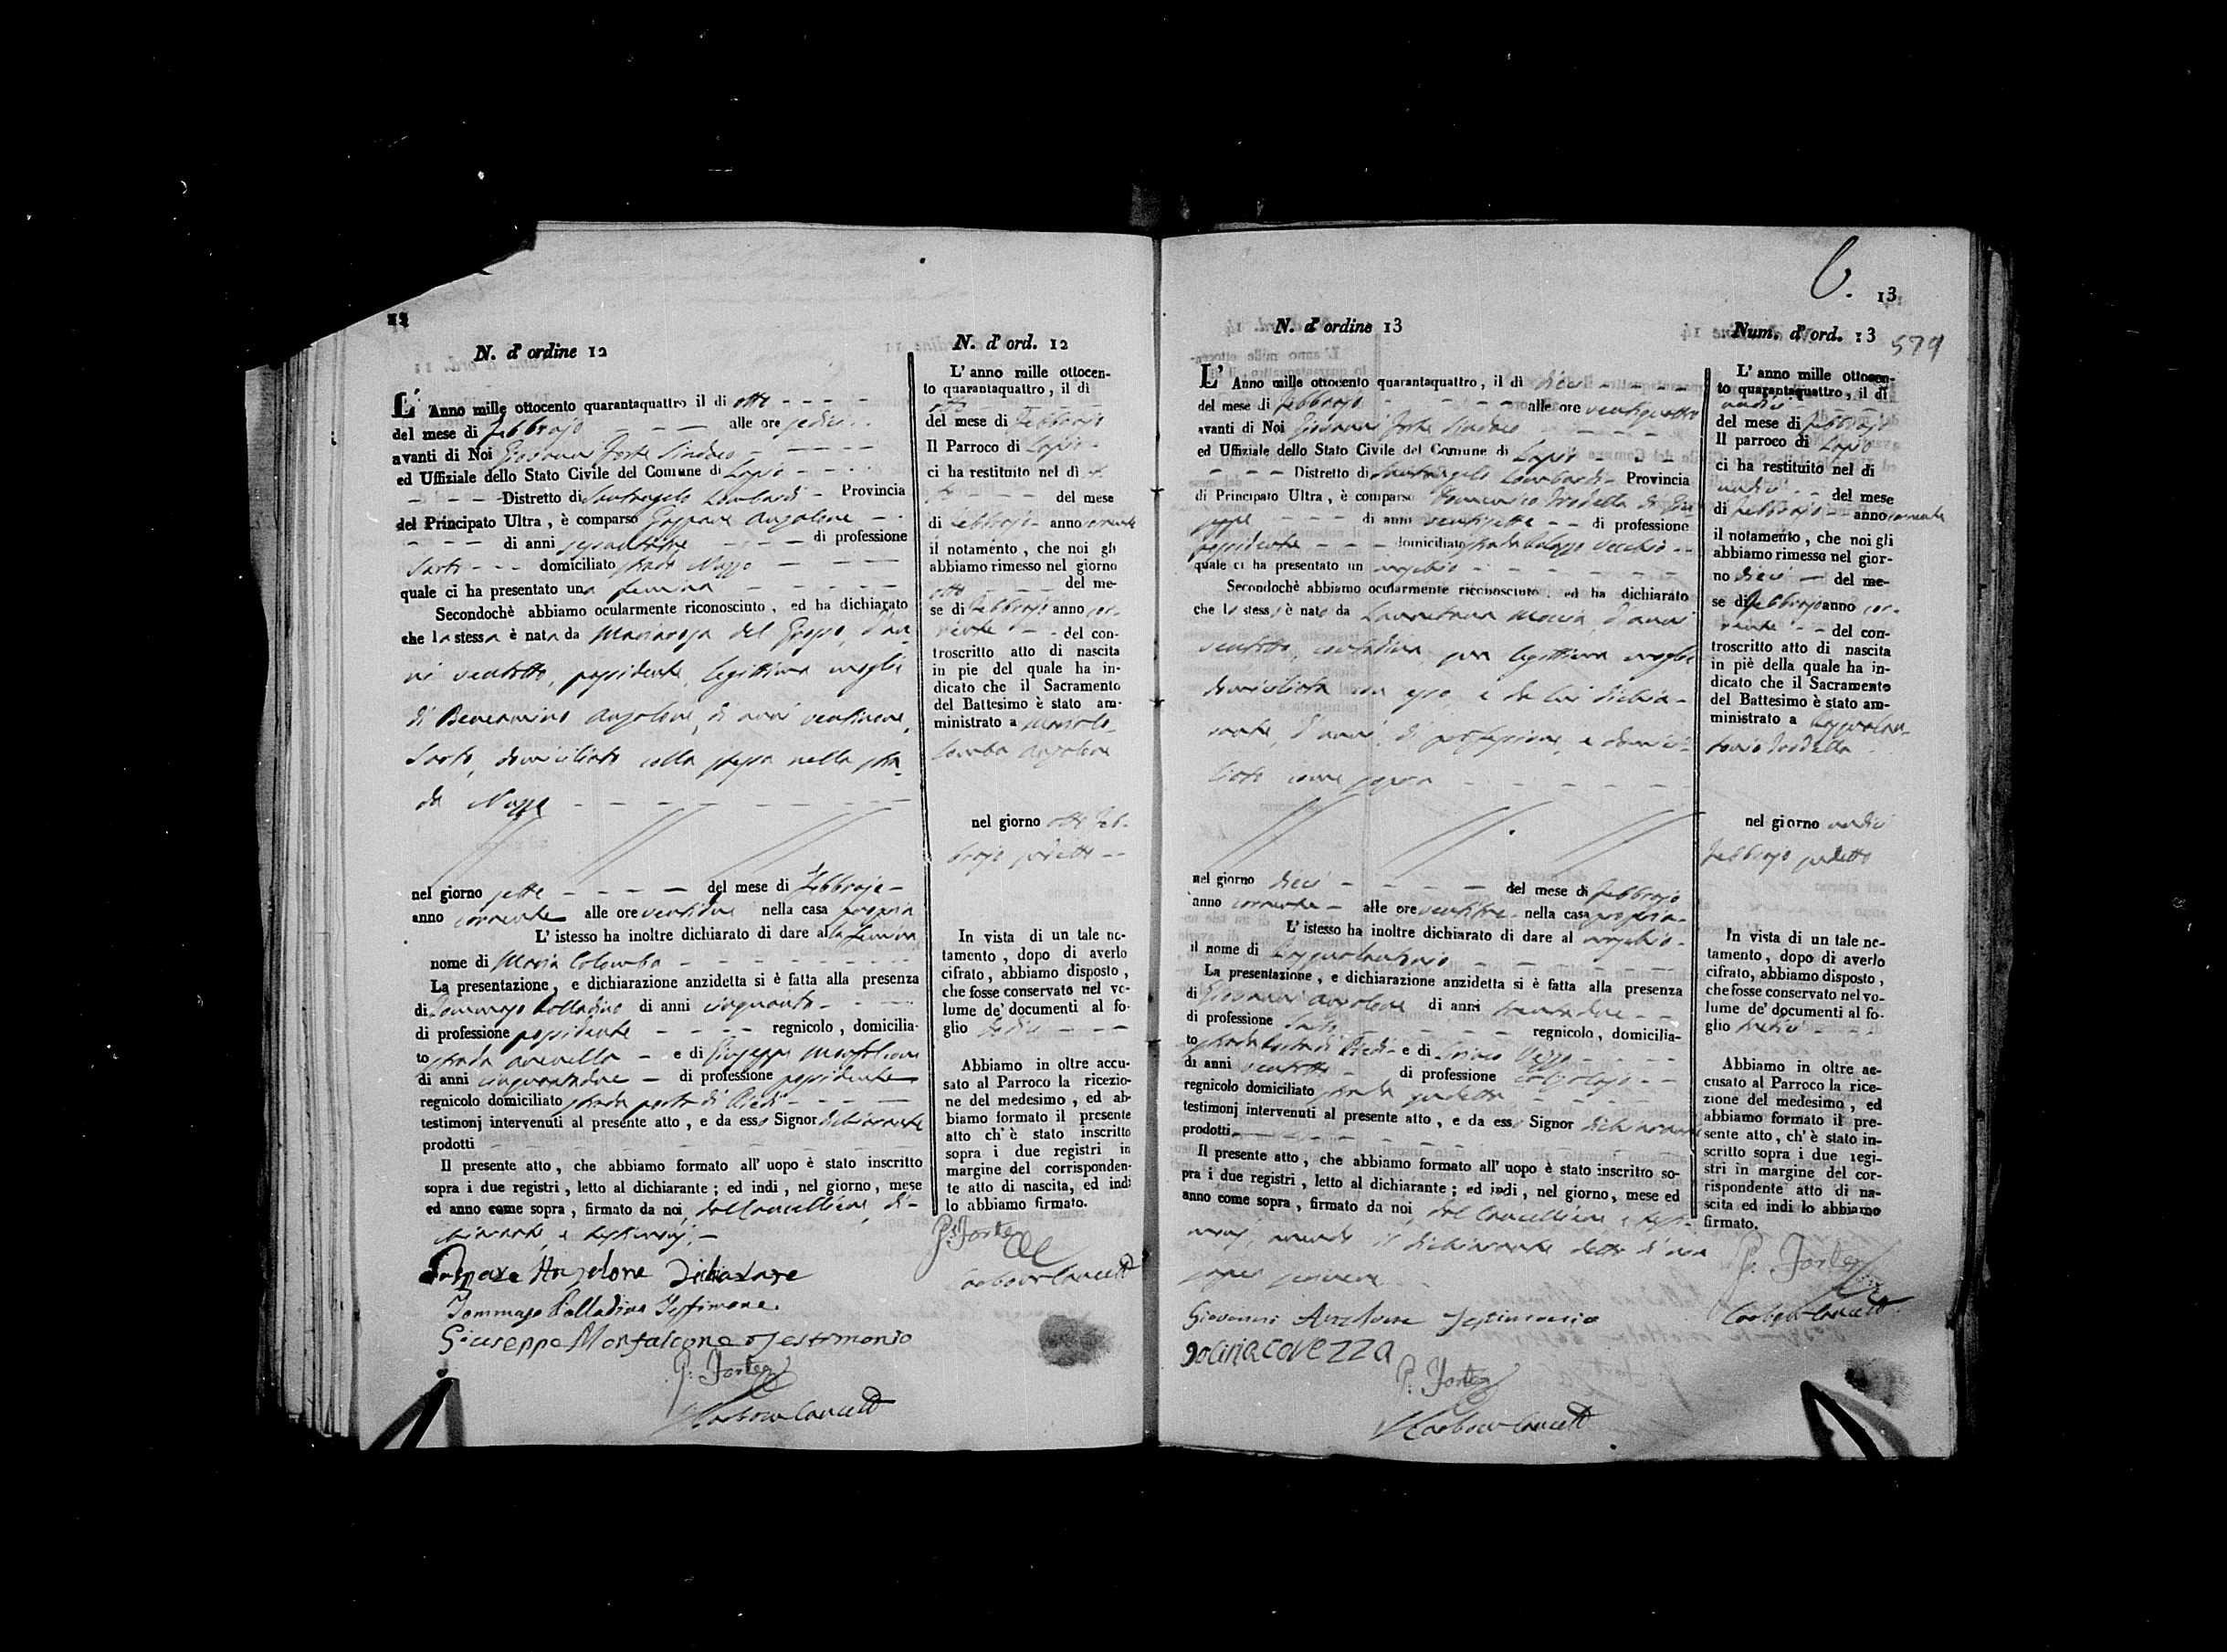 12
N. d' ordine 12
L' Anno mille ottocento quarantaquattro il di otto
del mese di Febbrajo alle ore sedici
avanti di Noi Giovanni Forte Sindaco
ed Uffiziale dello Stato Civile del Comune di Lapio
Distretto di Santangelo Lombardi Provincia
del Principato Ultra, è comparso Gaspare Anzalone
di anni di professione
Sarto domiciliato strada Nuzzo
quale ci ha presentato una femina
Secondochè abbiamo ocularmente riconosciuto, ed ha dichiarato
che la stessa è nata da Mariarosa del Grosso, d'an-
ni ventotto, possidente, legittima moglie
di Beniamino Anzalone, di anni ventinove,
Sarto, domiciliato colla stessa nella stra-
da Nuzzo
nel giorno sette del mese di Febbrajo
anno corrente alle ore ventidue nella casa propria
L' istesso ha inoltre dichiarato di dare alla femina
nome di Maria Colomba
La presentazione, e dichiarazione anzidetta si è fatta alla presenza
di Tommaso Palladino di anni cinquanta
di professione possidente regnicolo, domicilia-
to strada e di Giuseppe Monfalcone
di anni cinquantadue di professione possidente
regnicolo domiciliato strada porta di Piedi
testimonj intervenuti al presente atto, e da esso Signor dichiarante
prodotti
Il presente atto, che abbiamo formato all' uopo è stato inscritto
sopra i due registri, letto al dichiarante; ed indi, nel giorno, mese
ed anno come sopra, firmato da noi, dal Cancelliere, di-
chiarante, e testimonj.
Gaspare Anzalone Dichiarante
Tommaso Palladino Testimone.
Giuseppe Monfalcone Testimonio
G: Forte
N. d' ord. 12
L' anno mille ottocen-
to quarantaquattro, il dì
otto
del mese di Febbrajo
Il Parroco di Lapio
ci ha restituito nel dì
del mese
di Febbrajo anno corrente
il notamento, che noi gli
abbiamo rimesso nel giorno
otto del me-
se di Febbrajo anno cor-
rente del con-
troscritto atto di nascita
in pie del quale ha in-
dicato che il Sacramento
del Battesimo è stato am-
ministrato a Maria Co-
lomba Anzalone
nel giorno otto Feb-
brajo sudetto
In vista di un tale no-
tamento, dopo di averlo
cifrato, abbiamo disposto,
che fosse conservato nel vo-
lume de' documenti al fo-
glio dodici
Abbiamo in oltre accu-
sato al Parroco la ricezio-
ne del medesimo, ed ab-
biamo formato il presente
atto ch' è stato inscritto
sopra i due registri in
margine del corrisponden-
te atto di nascita, ed indi
lo abbiamo firmato.
G: Forte
13
579
N. d' ordine 13
L' Anno mille ottocento quarantaquattro, il di dieci
del mese di Febbrajo alle ore ventiquattro
avanti di Noi Giovanni Forte Sindaco
ed Uffiziale dello Stato Civile del Comune di Lapio
Distretto di Santangelo Lombardi Provincia
di Principato Ultra, è comparso Domenico Trodella di Giu-
seppe di anni ventisette di professione
possidente domiciliato strada Palazzo Vecchio
quale ci ha presentato un maschio
Secondochè abbiamo ocularmente riconosciuto, ed ha dichiarato
che lo stesso è nato da Lauretana Moccia, d'anni
ventotto, contadina, sua legittima moglie
domiciliata con esso, e da lui dichia-
rante, d'anni, di professione, e domici-
liato come sopra
nel giorno dieci del mese di Febbrajo
anno corrente alle ore ventitre nella casa propria
L' istesso ha inoltre dichiarato di dare al maschio
il nome di Pasqualantonio
La presentazione, e dichiarazione anzidetta si è fatta alla presenza
di Giovanni Anzalone di anni trentadue
di professione Sarto regnicolo, domicilia-
to strada Porta di Piedi e di Ciriaco Vezza
di anni ventotto di professione calzolajo
regnicolo domiciliato strada sudetta
testimonj intervenuti al presente atto, e da esso Signor dichiarante
prodotti
Il presente atto, che abbiamo formato all' uopo è stato inscritto so-
pra i due registri, letto al dichiarante; ed indi, nel giorno, mese ed
anno come sopra, firmato da noi, dal Cancelliere, e testi-
monj, avendo il dichiarante detto di non
saper scrivere
Giovanni Anzalone Testimonio
G: Forte
Num. d' ord. 13
L' anno mille ottocen-
to quarantaquattro, il dì
undici
del mese di Febbrajo
Il parroco di Lapio
ci ha restituito nel di
undici del mese
di Febbrajo anno corrente
il notamento, che noi gli
abbiamo rimesso nel gior-
no dieci del me-
se di Febbrajo anno cor-
rente del con-
troscritto atto di nascita
in piè della quale ha in-
dicato che il Sacramento
del Battesimo è stato am-
ministrato a Pasqualan-
tonio Trodella
nel giorno undici
Febbrajo sudetto
In vista di un tale no-
tamento, dopo di averlo
cifrato, abbiamo disposto,
che fosse conservato nel vo-
lume de' documenti al fo-
glio tredici
Abbiamo in oltre ac-
cusato al Parroco la rice-
zione del medesimo, ed
abbiamo formato il pre-
sente atto, ch' è stato in-
scritto sopra i due regi-
stri in margine del cor-
rispondente atto di na-
scita ed indi lo abbiamo
firmato.
G. Forte